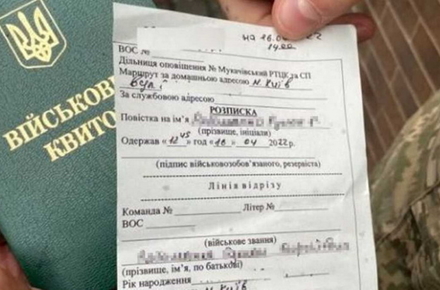 ВІЙСЬКОВ
КВИТО
на 16.0
14.00
ВОС №
Дільниця оповіщення № Мукачівський РТЦК та СП
Маршрут за домашньою адресою м. Київ
За службовою адресою
РОЗПИСКА
Повістка на ім'я
(прізвище, ініціали)
Одержав «12 45» год «16» 04 2022 р.
(підпис військовозобов'язаного, резервіста)
Лінія відрізу
Команда № Літер №
ВОС
(військове звання)
(прізвище, ім'я, по батькові)
Рік народження
м. Київ